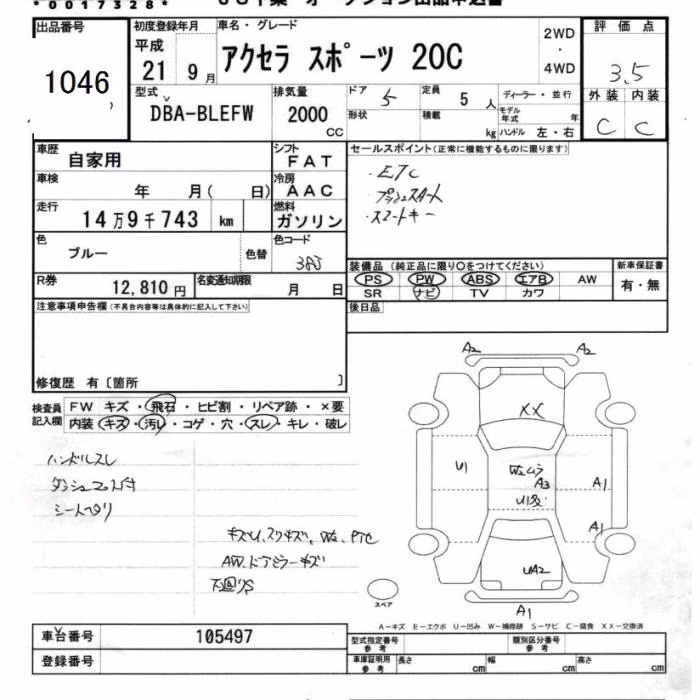 *0017328*
出品番号 初度登録年月 車名・グレード 2WD 評価点
平成 アクセラ スポーツ 20C ・
1046 21 9月 4WD 3.5
型式 排気量 ドア 5 定員 5人 ディーラー・並行 外装 内装
DBA-BLEFW 2000 cc 形状 積載 kg モデル年式 年 C C
ハンドル 左・右
車歴 自家用 シフト FAT セールスポイント(正常に機能するものに限ります)
車検 年 月( 日) 冷房 AAC ・ETC
走行 14万9千743 km 燃料 ガソリン ・プッシュスタート
・スマートキー
色 ブルー 色替 色コード 38J
装備品(純正品に限り○をつけてください) 新車保証書
R券 12,810円 名変通知期限 月 日 PS PW ABS エアB AW 有・無
SR ナビ TV カワ
注意事項申告欄(不具合内容等は具体的に記入して下さい) 後日品
修復歴 有〔箇所 〕
検査員記入欄 FW キズ・飛石・ヒビ割・リペア跡・×要
内装 キズ・汚レ・コゲ・穴・スレ・キレ・破レ
ハンドルスレ
シートヘタリ
AW、ドアミラーキズ
下廻りS
A2 A2
XX
U1 W2ムラ A3 A1
A1
UA2
A1
スペア
A-キズ E-エクボ U-凹み W-補修跡 S-サビ C-腐食 XX-交換済
車台番号 105497 型式指定番号 参考 類別区分番号 参考
登録番号 車庫証明用 参考 長さ cm 幅 cm 高さ cm